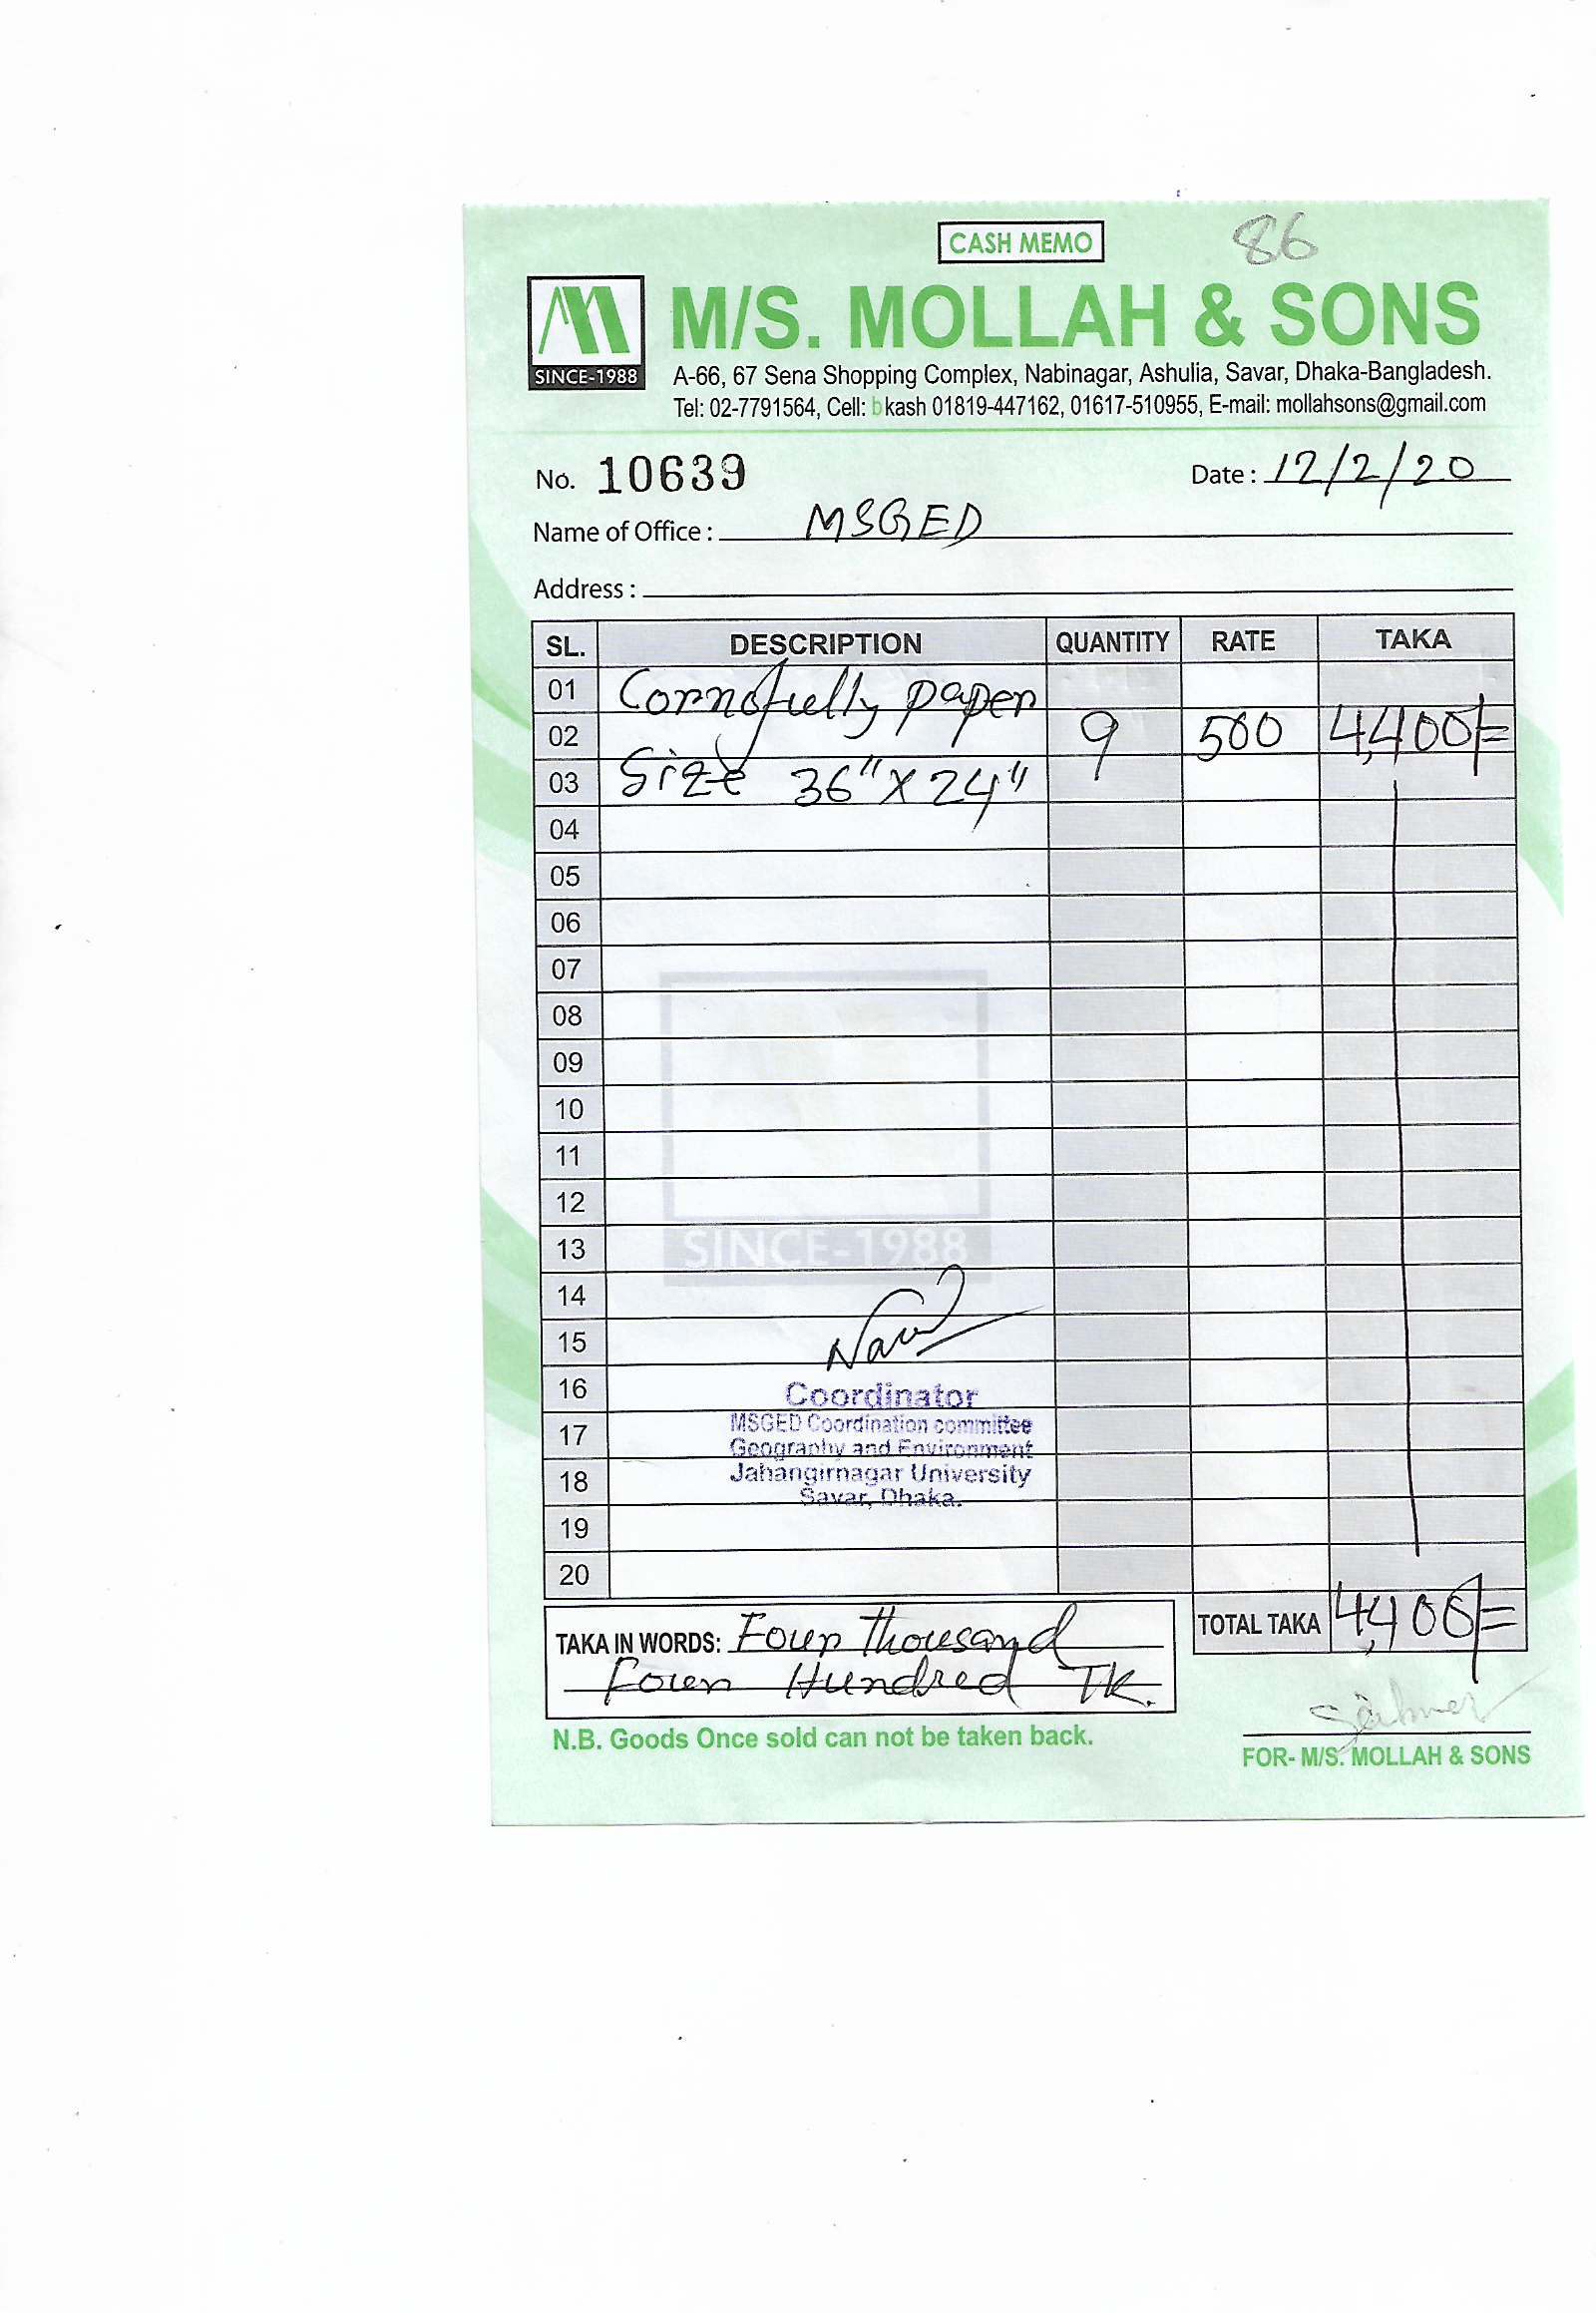 86
CASH MEMO
M/S. MOLLAH & SONS
SINCE-1988
A-66, 67 Sena Shopping Complex, Nabinagar, Ashulia, Savar, Dhaka-Bangladesh.
Tel: 02-7791564, Cell: bkash 01819-447162, 01617-510955, E-mail: mollahsons@gmail.com
No. 10639 Date : 12/2/20
Name of Office : MSGED
Address :
SL. DESCRIPTION QUANTITY RATE TAKA
01 Cornofully paper
02 9 500 4,400/=
03 Size 36" X 24"
04
05
06
07
08
09
10
11
12
13
SINCE-1988
14
15
16 Coordinator
17 MSGED Coordination committee
Geography and Environment
18 Jahangirnagar University
Savar, Dhaka.
19
20
TAKA IN WORDS: Four Thousand TOTAL TAKA 4,400/=
Four Hundred TK.
N.B. Goods Once sold can not be taken back.
FOR- M/S. MOLLAH & SONS